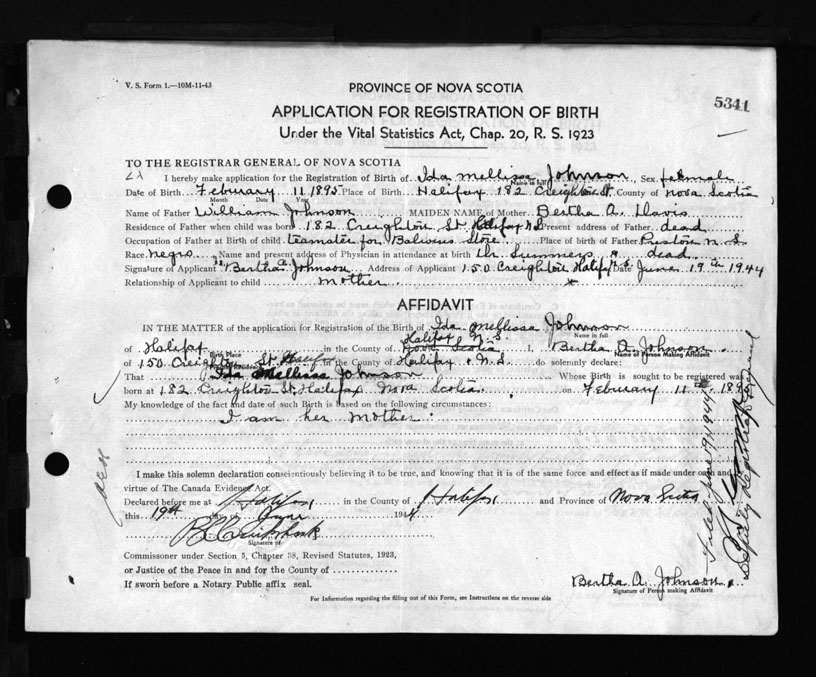 V. S. Form 1.—10M-11-43
PROVINCE OF NOVA SCOTIA
5341
APPLICATION FOR REGISTRATION OF BIRTH
Under the Vital Statistics Act, Chap. 20, R. S. 1923
TO THE REGISTRAR GENERAL OF NOVA SCOTIA
I hereby make application for the Registration of Birth of Ida mellissa Johnson, Sex female
Name in full
Date of Birth Feburary 11 1895 Place of Birth Halifax 182 Creighton St. County of nova Scotia
Month Date Year
Name of Father William Johnson MAIDEN NAME of Mother Bertha A. Davis
Residence of Father when child was born 182 Creighton St Halifax N.S Present address of Father dead
Occupation of Father at Birth of child teamster for Store Place of Birth of Father Preston n. S.
Race negro Name and present address of Physician in attendance at birth Dr. Summers dead
Signature of Applicant "Bertha A Johnson Address of Applicant 150 Creighton Halifax N.S Date June 19th 1944
Relationship of Applicant to child mother
AFFIDAVIT
IN THE MATTER of the application for Registration of the Birth of Ida mellissa Johnson
Name in full
Halifax N. S.
of Halifax in the County of Nova Scotia I, Bertha A Johnson
Birth Place Name of Person Making Affidavit
of 150 Creighton St. Halifax in the County of Halifax N.S. do solemnly declare:
That Ida Mellissa Johnson Whose Birth is sought to be registered was
born at 182 Creighton St. Halifax Nova Scotia on Feburary 11th 1895
My knowledge of the fact and date of such Birth is based on the following circumstances:
I am her mother
I make this solemn declaration conscientiously believing it to be true, and knowing that it is of the same force and effect as if made under oath and
virtue of The Canada Evidence Act.
Declared before me at Halifax in the County of Halifax and Province of Nova Scotia
this 19th day of June 1944
Signature of
Commissioner under Section 5, Chapter 38, Revised Statutes, 1923,
or Justice of the Peace in and for the County of
If sworn before a Notary Public affix seal.
Bertha A. Johnson
Signature of Person making Affidavit
For Information regarding the filling out of this Form, see Instructions on the reverse side
Filed June 19, 1944
Deputy Registrar General